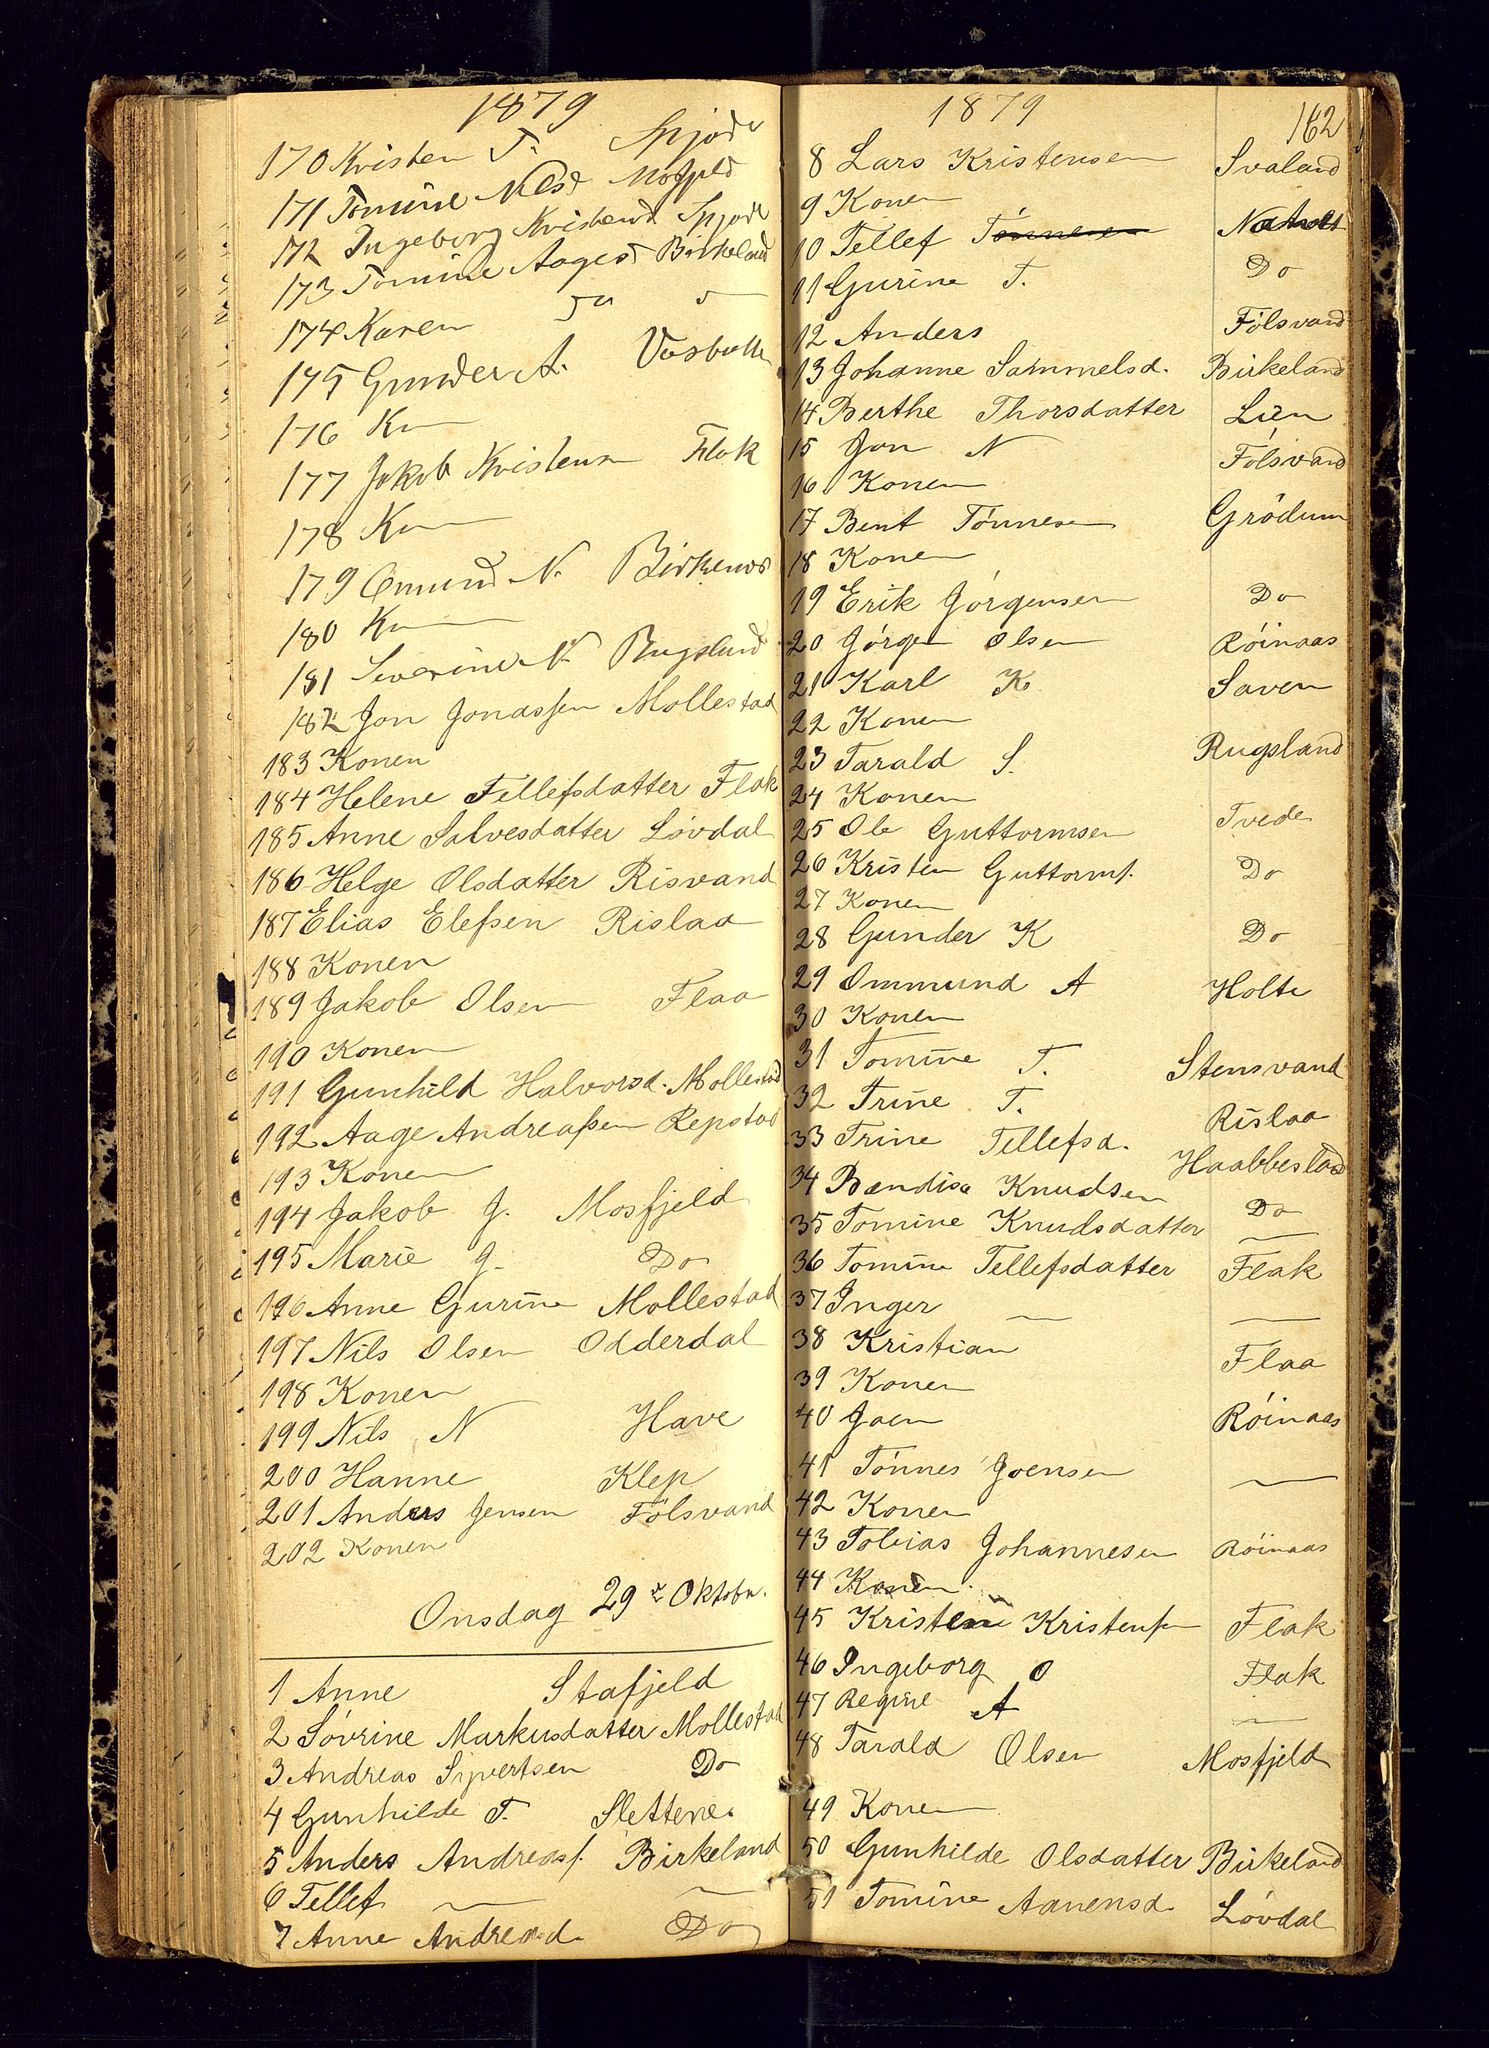 1879
170 Kristen T. Spjode
171 Tomine Nilsd Mosfjeld
172 Ingeborg Kristensd Spjode
173 Tomine Aagesd Birkeland
174 Karen
175 Gunder A.
176 K
177 Jakob Kristensen Flak
178 K
179 Omund N.
180 K
181 Severine N. Rugsland
182 Jon Jonassen Mollestad
183 Konen
184 Helene Tellefsdatter Flak
185 Anne Salvesdatter Løvdal
186 Helge Olsdatter Risvand
187 Elias Elefsen Rislaa
188 Konen
189 Jakob Olsen Flaa
190 Konen
191 Gunhild Halvorsd. Mollestad
192 Aage Andreassen Repstad
193 Konen
194 Jakob J. Mosfjeld
195 Marie J. Do
196 Anne Gurine Mollestad
197 Nils Olsen Odderdal
198 Konen
199 Nils N Have
200 Hanne Klep
201 Anders Jensen Fölsvand
202 Konen
Onsdag 29de Oktobr.
1 Anne Stafjeld
2 Sövrine Markusdatter Mollestad
3 Andreas Sivertsen Do
4 Gunhilde T. Slettene
5 Anders Andreasf. Birkeland
6 Tellef — —
7 Anne Andreasd. Do
1879 162
8 Lars Kristensen Svaland
9 Konen
10 Tellef Tönnesen
11 Gurine T. Do
12 Anders Fölsvand
13 Johanne Sammelsd. Birkeland
14 Berthe Thorsdatter Lien
15 Jon N Fölsvand
16 Konen
17 Bent Tönnesen Grödum
18 Konen
19 Erik Jörgensen Do
20 Jörgen Olsen Röinaas
21 Karl K Saven
22 Konen
23 Tarald S. Rugsland
24 Konen
25 Ole Guttormsen Tvede
26 Kristen Guttormf. Do
27 Konen
28 Gunder K Do
29 Ommund A Holte
30 Konen
31 Tomine T. Stensvand
32 Trine T. Rislaa
33 Trine Tellefsd. Haabbestad
34 Bendise Knudsen Do
35 Tomine Knudsdatter —
36 Tomine Tellefsdatter Flak
37 Inger — —
38 Kristian Flaa
39 Konen
40 Joen Röinaas
41 Tönnes Joensen —
42 Konen
43 Tobias Johannesen Röinaas
44 Konen.
45 Kristen Kristensen Flak
46 Ingeborg O Flak
47 Regine A —
48 Tarald Olsen Mosfjeld
49 Konen
50 Gunhilde Olsdatter Birkeland
51 Tomine Aanensd. Lövdal